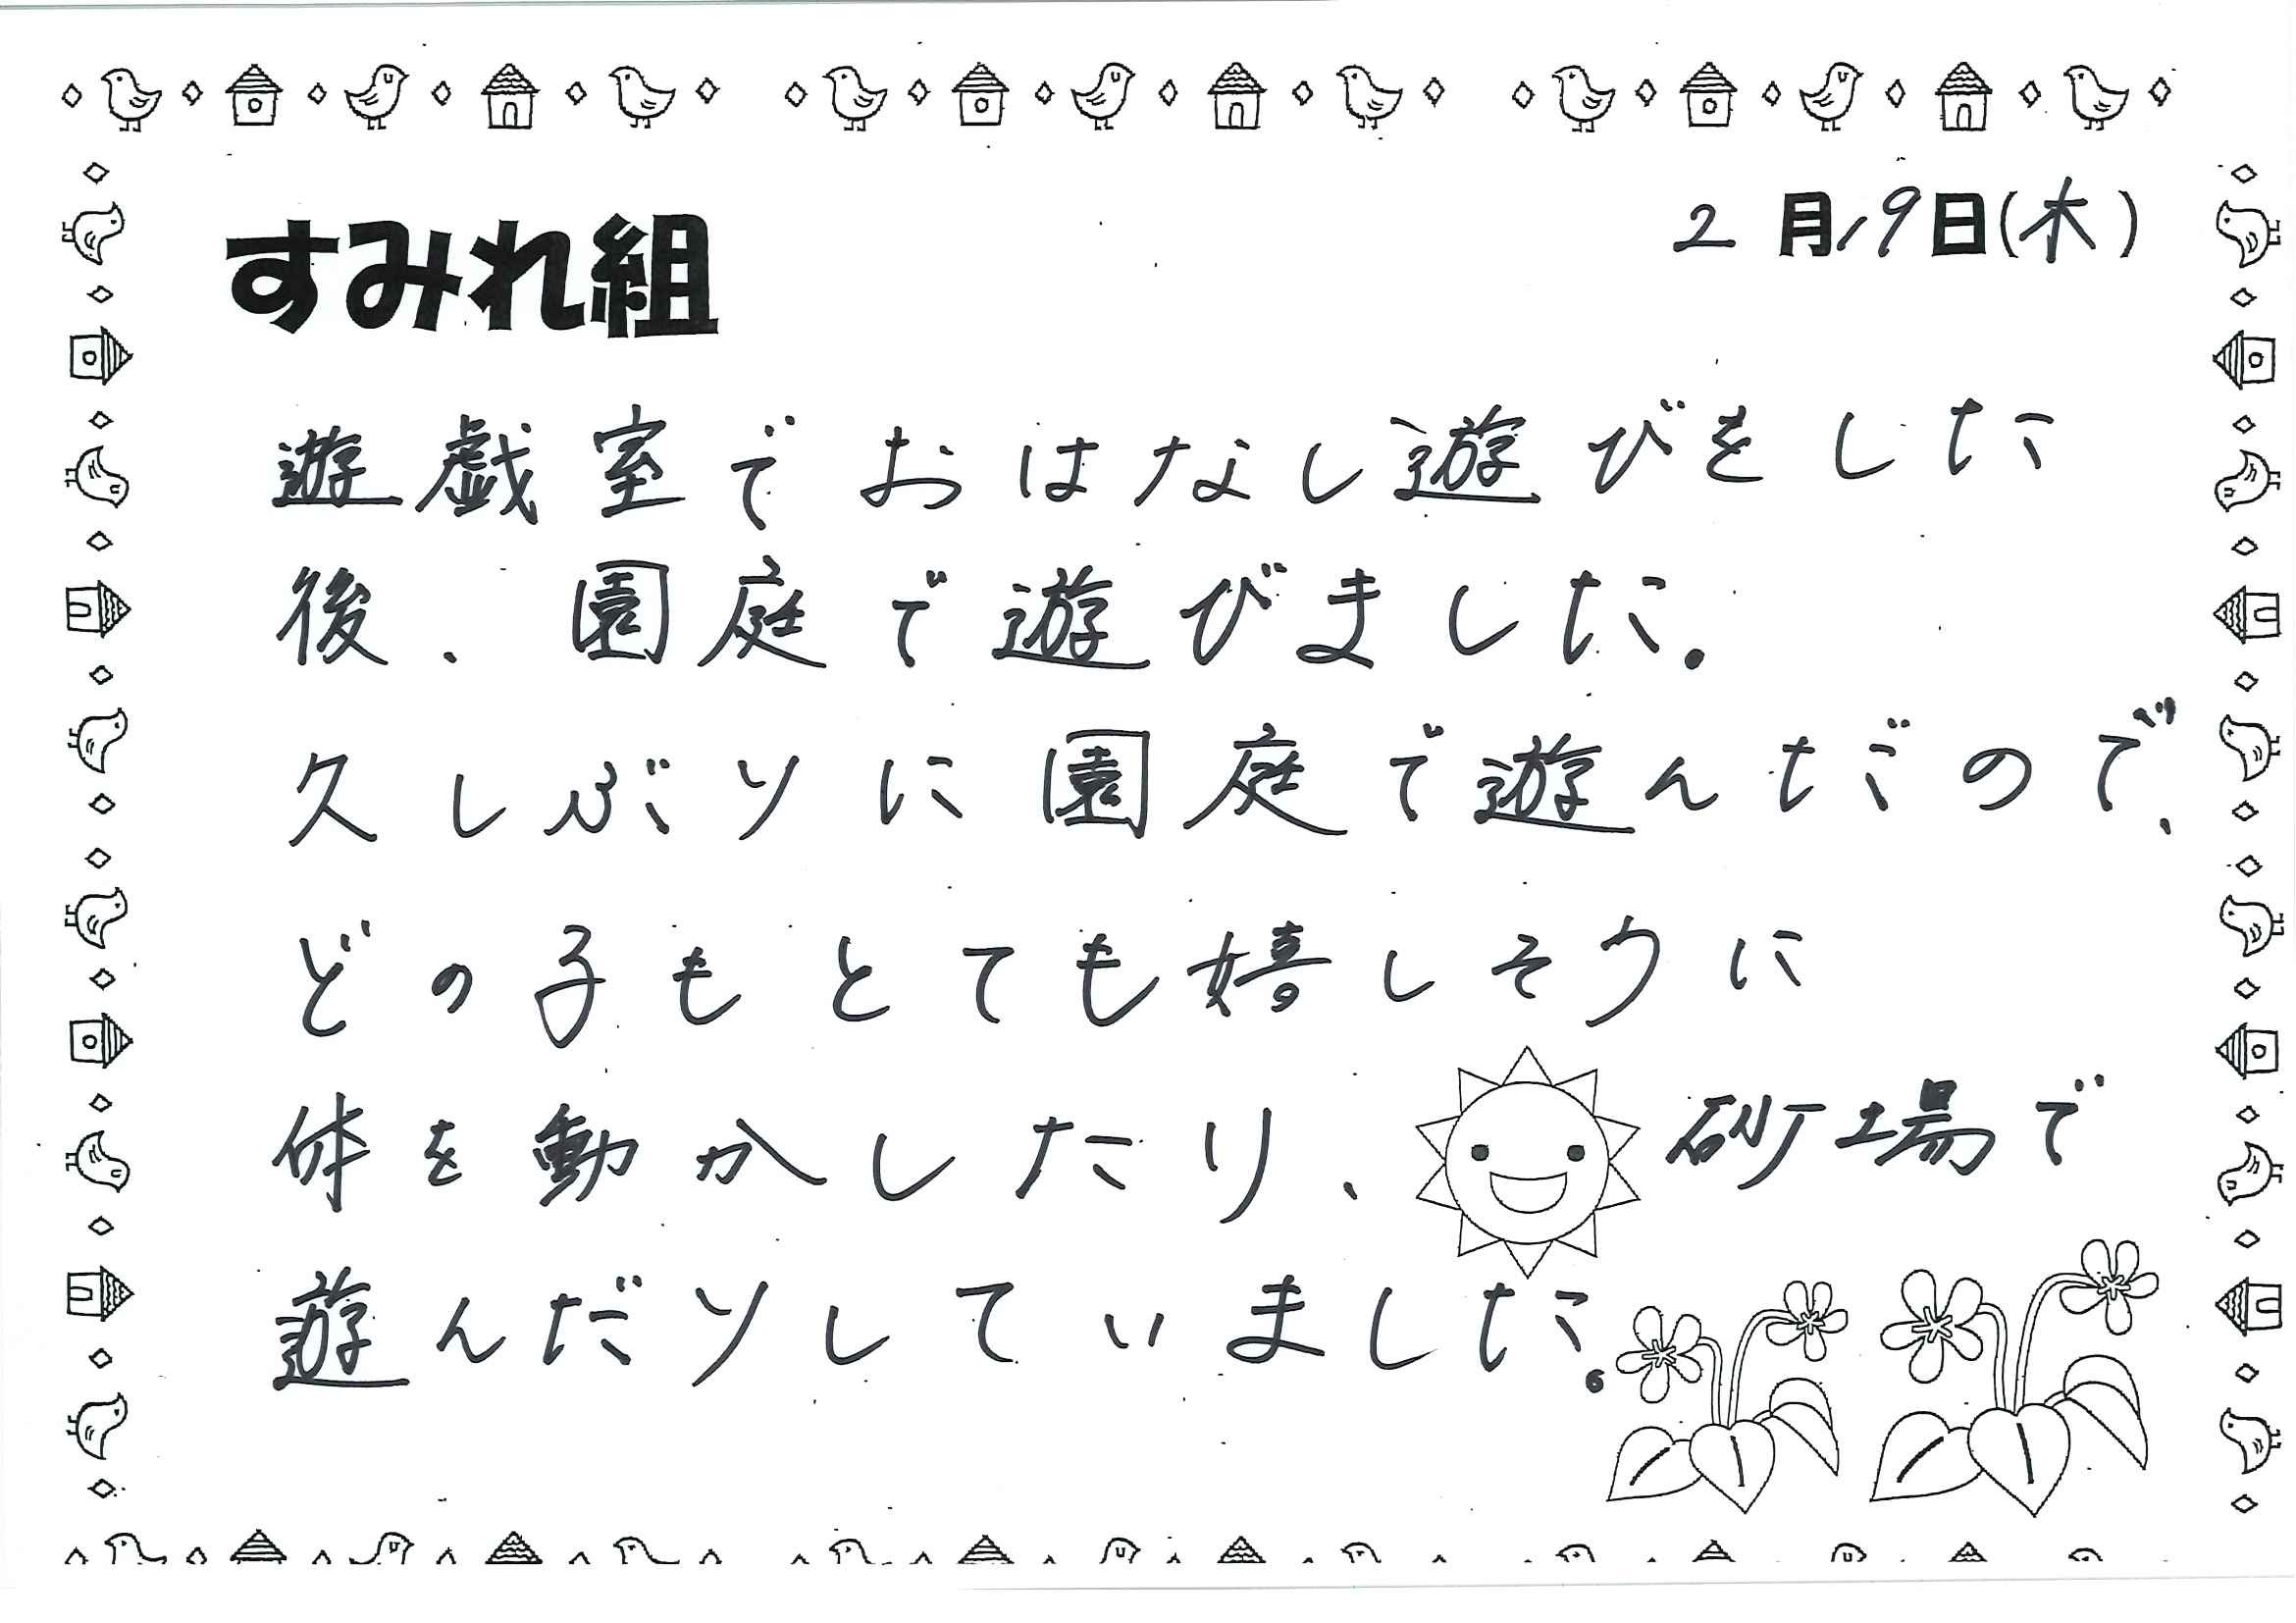 2月19日(木)
すみれ組
遊戯室でおはなし遊びをした
後、園庭で遊びました。
久しぶりに園庭で遊んだので、
どの子もとても嬉しそうに
体を動かしたり、砂場で
遊んだりしていました。